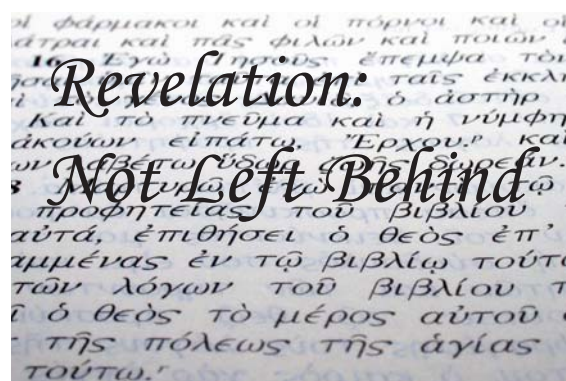 οἱ φάρμακοι καὶ οἱ πόρνοι καὶ οἱ
άτραι καὶ πᾶς φιλῶν καὶ ποιῶν
16 Ἐγὼ Ἰησοῦς ἔπεμψα τὸν
Revelation:
ταῖς ἐκκλ
ὁ ἀστὴρ
Καὶ τὸ πνεῦμα καὶ ἡ νύμφη
ἀκούων εἰπάτω, Ἔρχου. καὶ
ὕδωρ ζωῆς δωρεάν.
Not Left Behind
τῷ
προφητείας τοῦ βιβλίου
αὐτά, ἐπιθήσει ὁ θεὸς ἐπ᾽
αμμένας ἐν τῷ βιβλίῳ τούτ
τῶν λόγων τοῦ βιβλίου τ
ὁ θεὸς τὸ μέρος αὐτοῦ
τῆς πόλεως τῆς ἁγίας
τούτῳ.